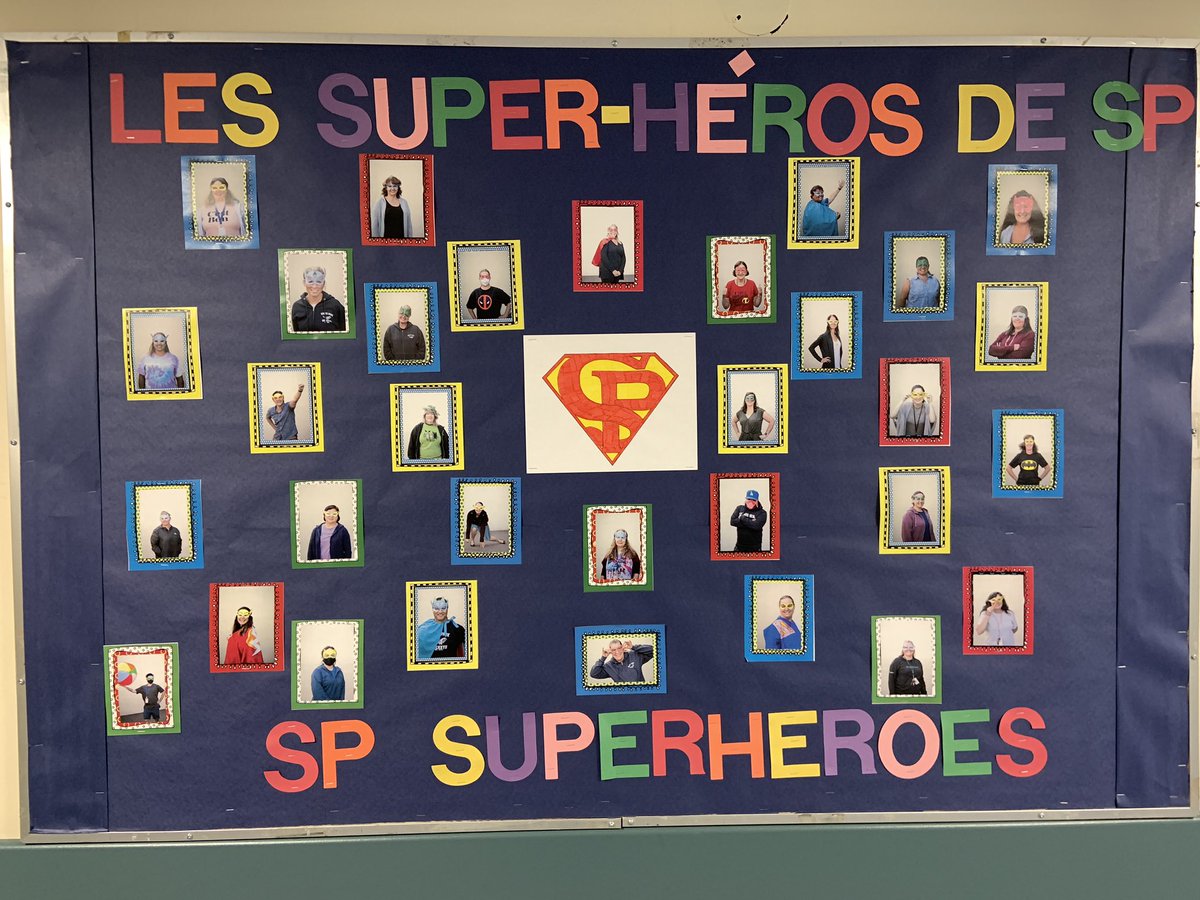 LES SUPER-HÉROS DE SP
SP
SP SUPERHEROES